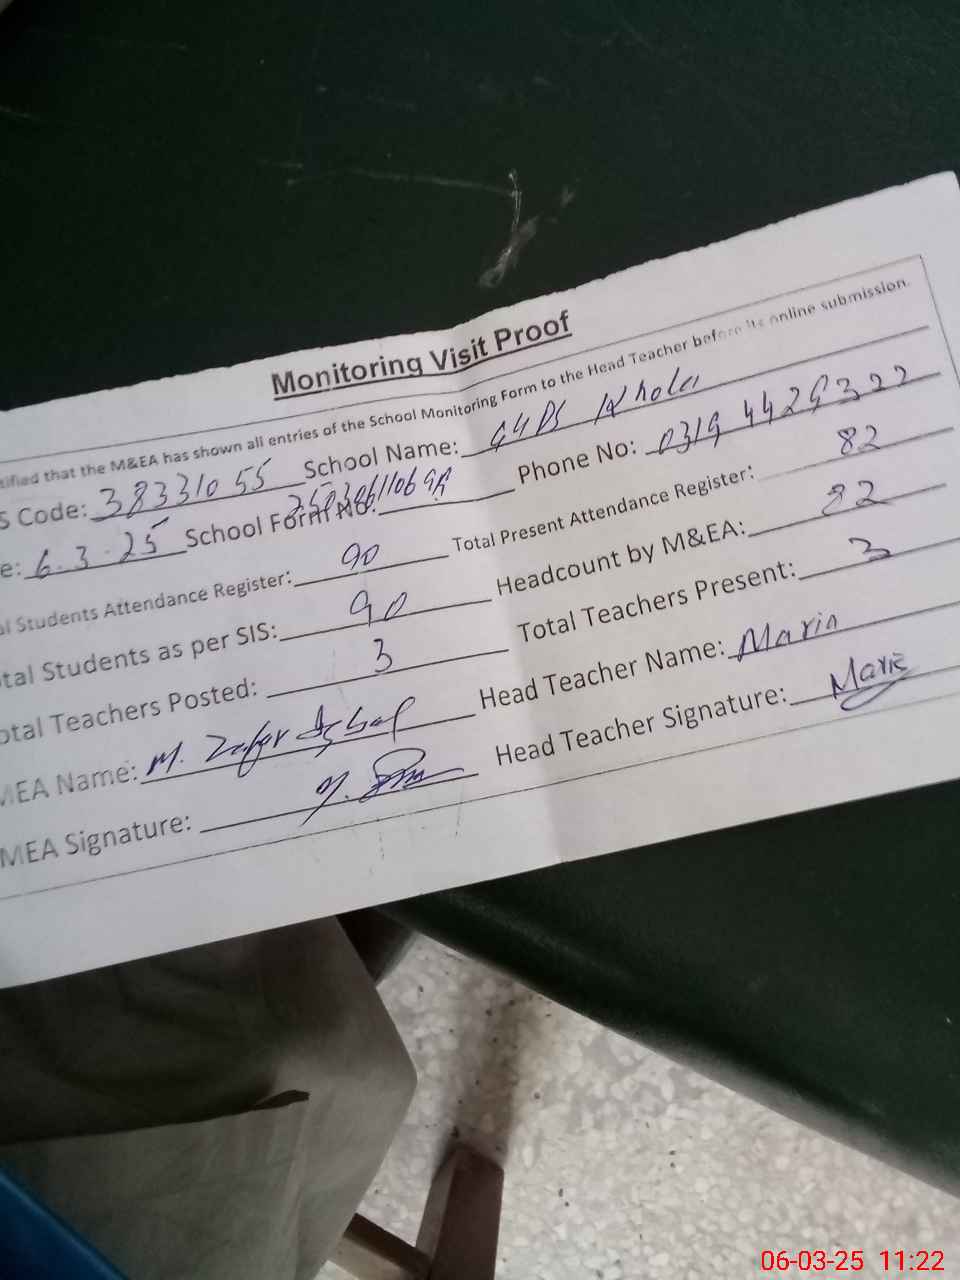 Monitoring Visit Proof
tified that the M&EA has shown all entries of the School Monitoring Form to the Head Teacher before its online submission.
S Code: 38331055 School Name: GGPS Khola
e: 6.3.25 School Form No: Phone No: 0319 4429322
al Students Attendance Register: 90 Total Present Attendance Register: 82
tal Students as per SIS: 90 Headcount by M&EA: 82
otal Teachers Posted: 3 Total Teachers Present: 3
MEA Name: M. Zafar Iqbal Head Teacher Name: Maria
MEA Signature: Head Teacher Signature: Maria
06-03-25 11:22